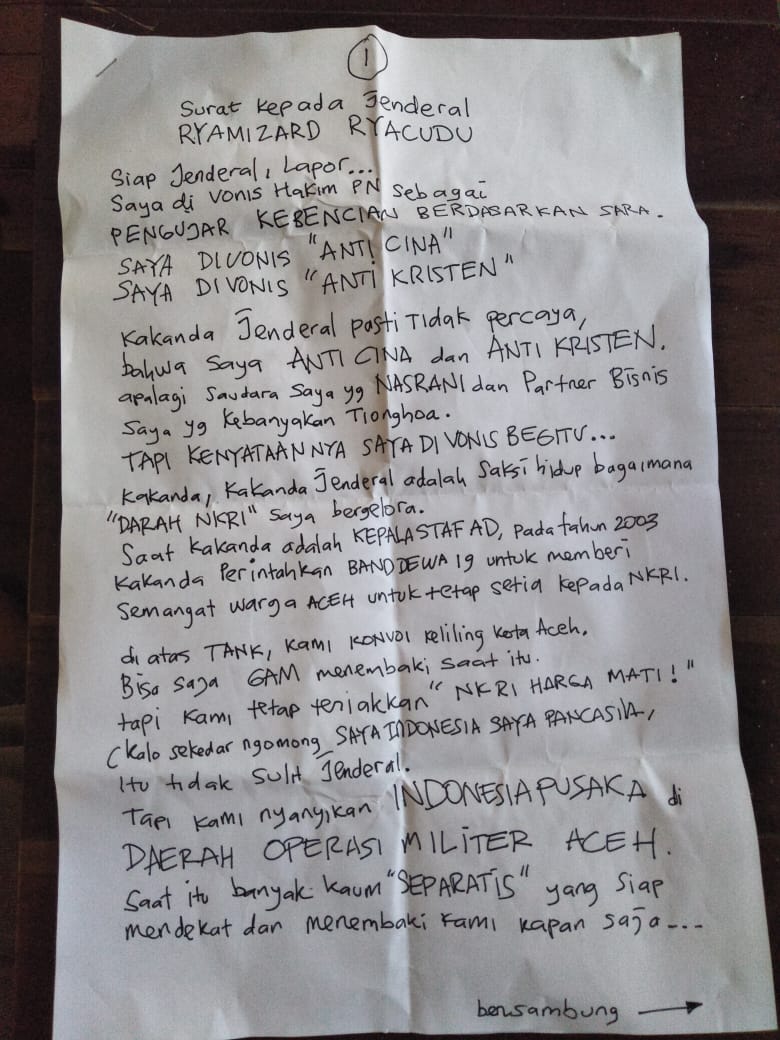 1
Surat kepada Jenderal
RYAMIZARD RYACUDU
Siap Jenderal, Lapor...
Saya di vonis Hakim PN sebagai
PENGUJAR KEBENCIAN BERDASARKAN SARA.
SAYA DIVONIS "ANTI CINA"
SAYA DIVONIS "ANTI KRISTEN"
Kakanda Jenderal pasti Tidak percaya,
bahwa saya ANTI CINA dan ANTI KRISTEN.
apalagi saudara saya yg NASRANI dan Partner Bisnis
saya yg kebanyakan Tionghoa.
TAPI KENYATAANNYA SAYA DI VONIS BEGITU...
Kakanda, Kakanda Jenderal adalah saksi hidup bagaimana
"DARAH NKRI" saya bergelora.
Saat kakanda adalah KEPALA STAF AD, pada tahun 2003
kakanda Perintahkan BAND DEWA 19 untuk memberi
semangat warga ACEH untuk tetap setia kepada NKRI.
di atas TANK, kami KONVOI keliling kota Aceh.
Bisa saja GAM menembaki saat itu.
tapi kami tetap teriakkan "NKRI HARGA MATI!"
(kalo sekedar ngomong SAYA INDONESIA SAYA PANCASILA,
itu tidak sulit Jenderal.
Tapi kami nyanyikan INDONESIA PUSAKA di
DAERAH OPERASI MILITER ACEH.
Saat itu banyak kaum "SEPARATIS" yang siap
mendekat dan menembaki kami kapan saja...
bersambung →